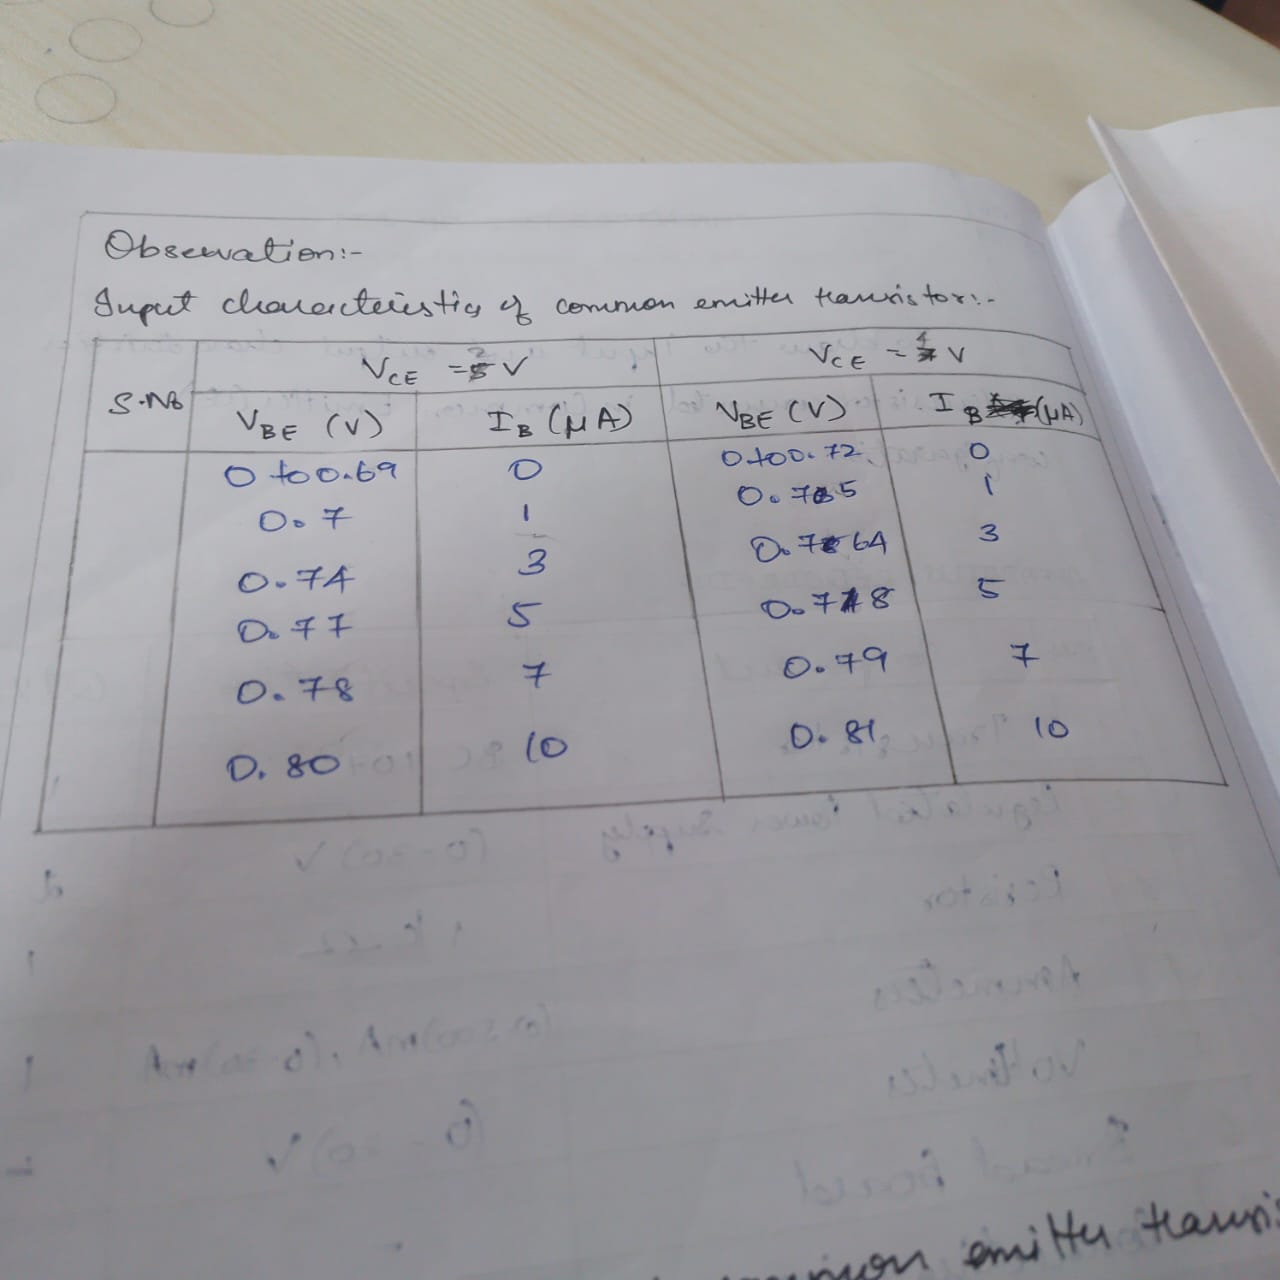 Observation:-
Input characteristics of common emitter transistor:-
S.No VCE = 2 V VCE = 4 V
VBE (V) IB (μA) VBE (V) IB (μA)
0 to 0.69 0 0 to 0.72 0
0.7 1 0.75 1
0.74 3 0.764 3
0.77 5 0.778 5
0.78 7 0.79 7
0.80 10 0.81 10
common emitter